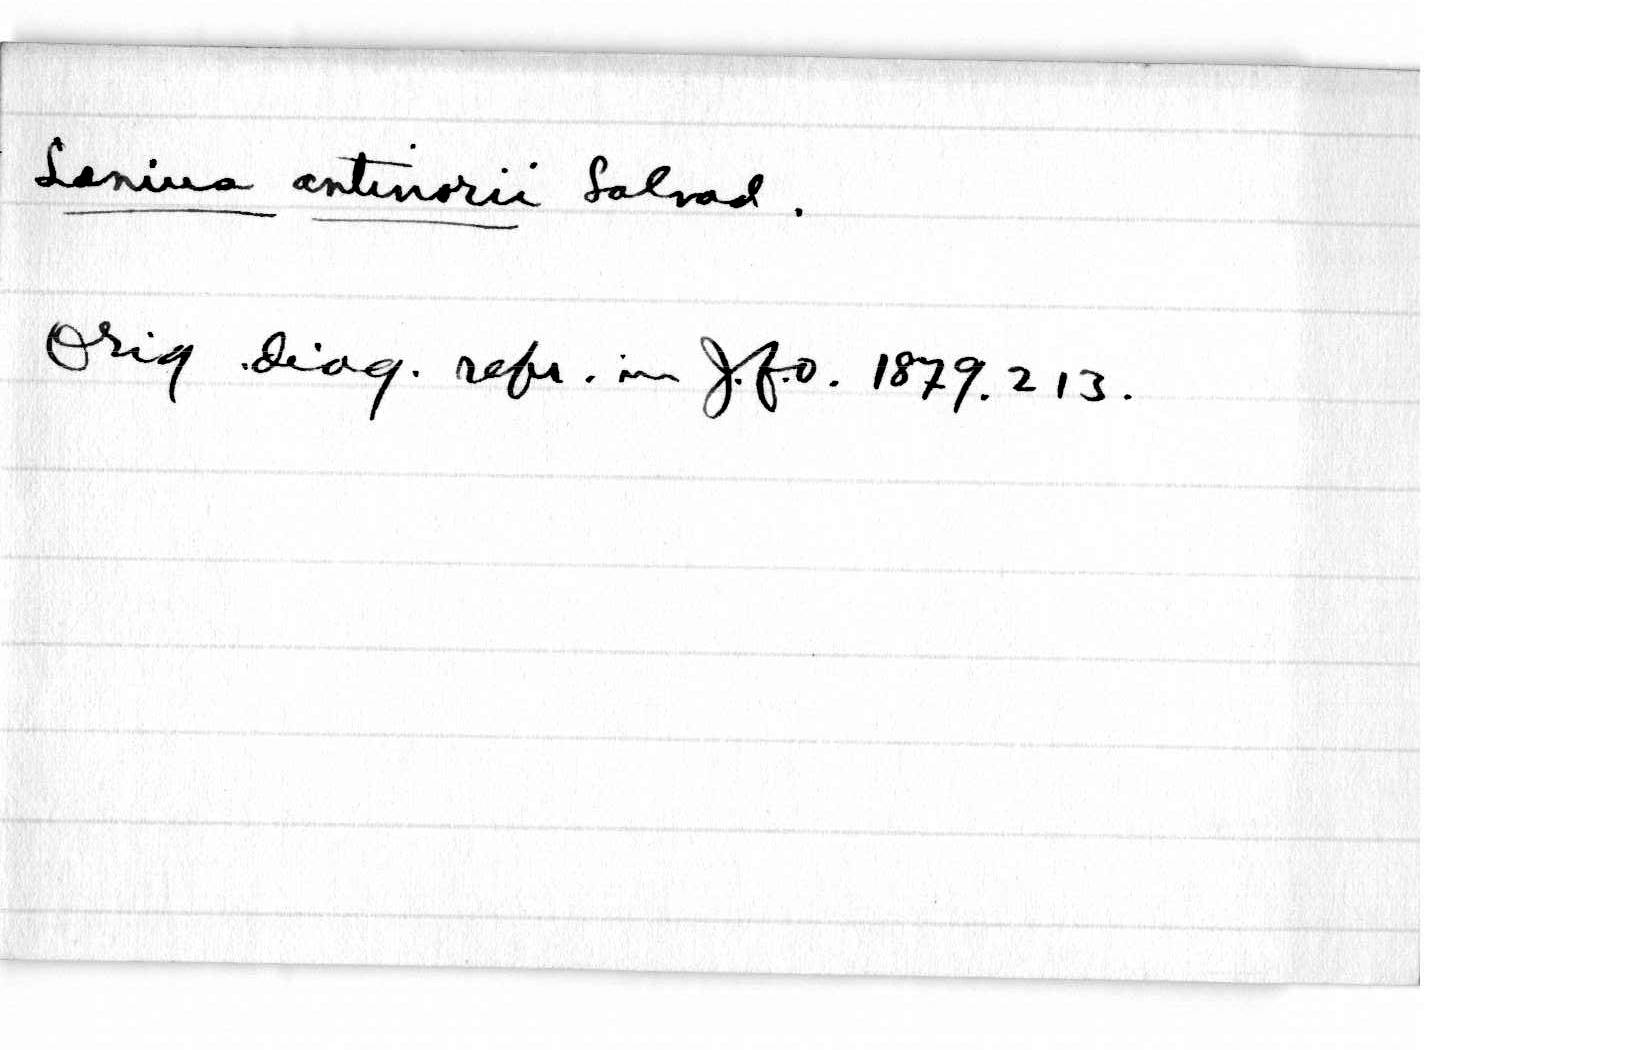 Lanius antinorii Salvad.
Orig. diag. repr. in J.f.O. 1879. 213.